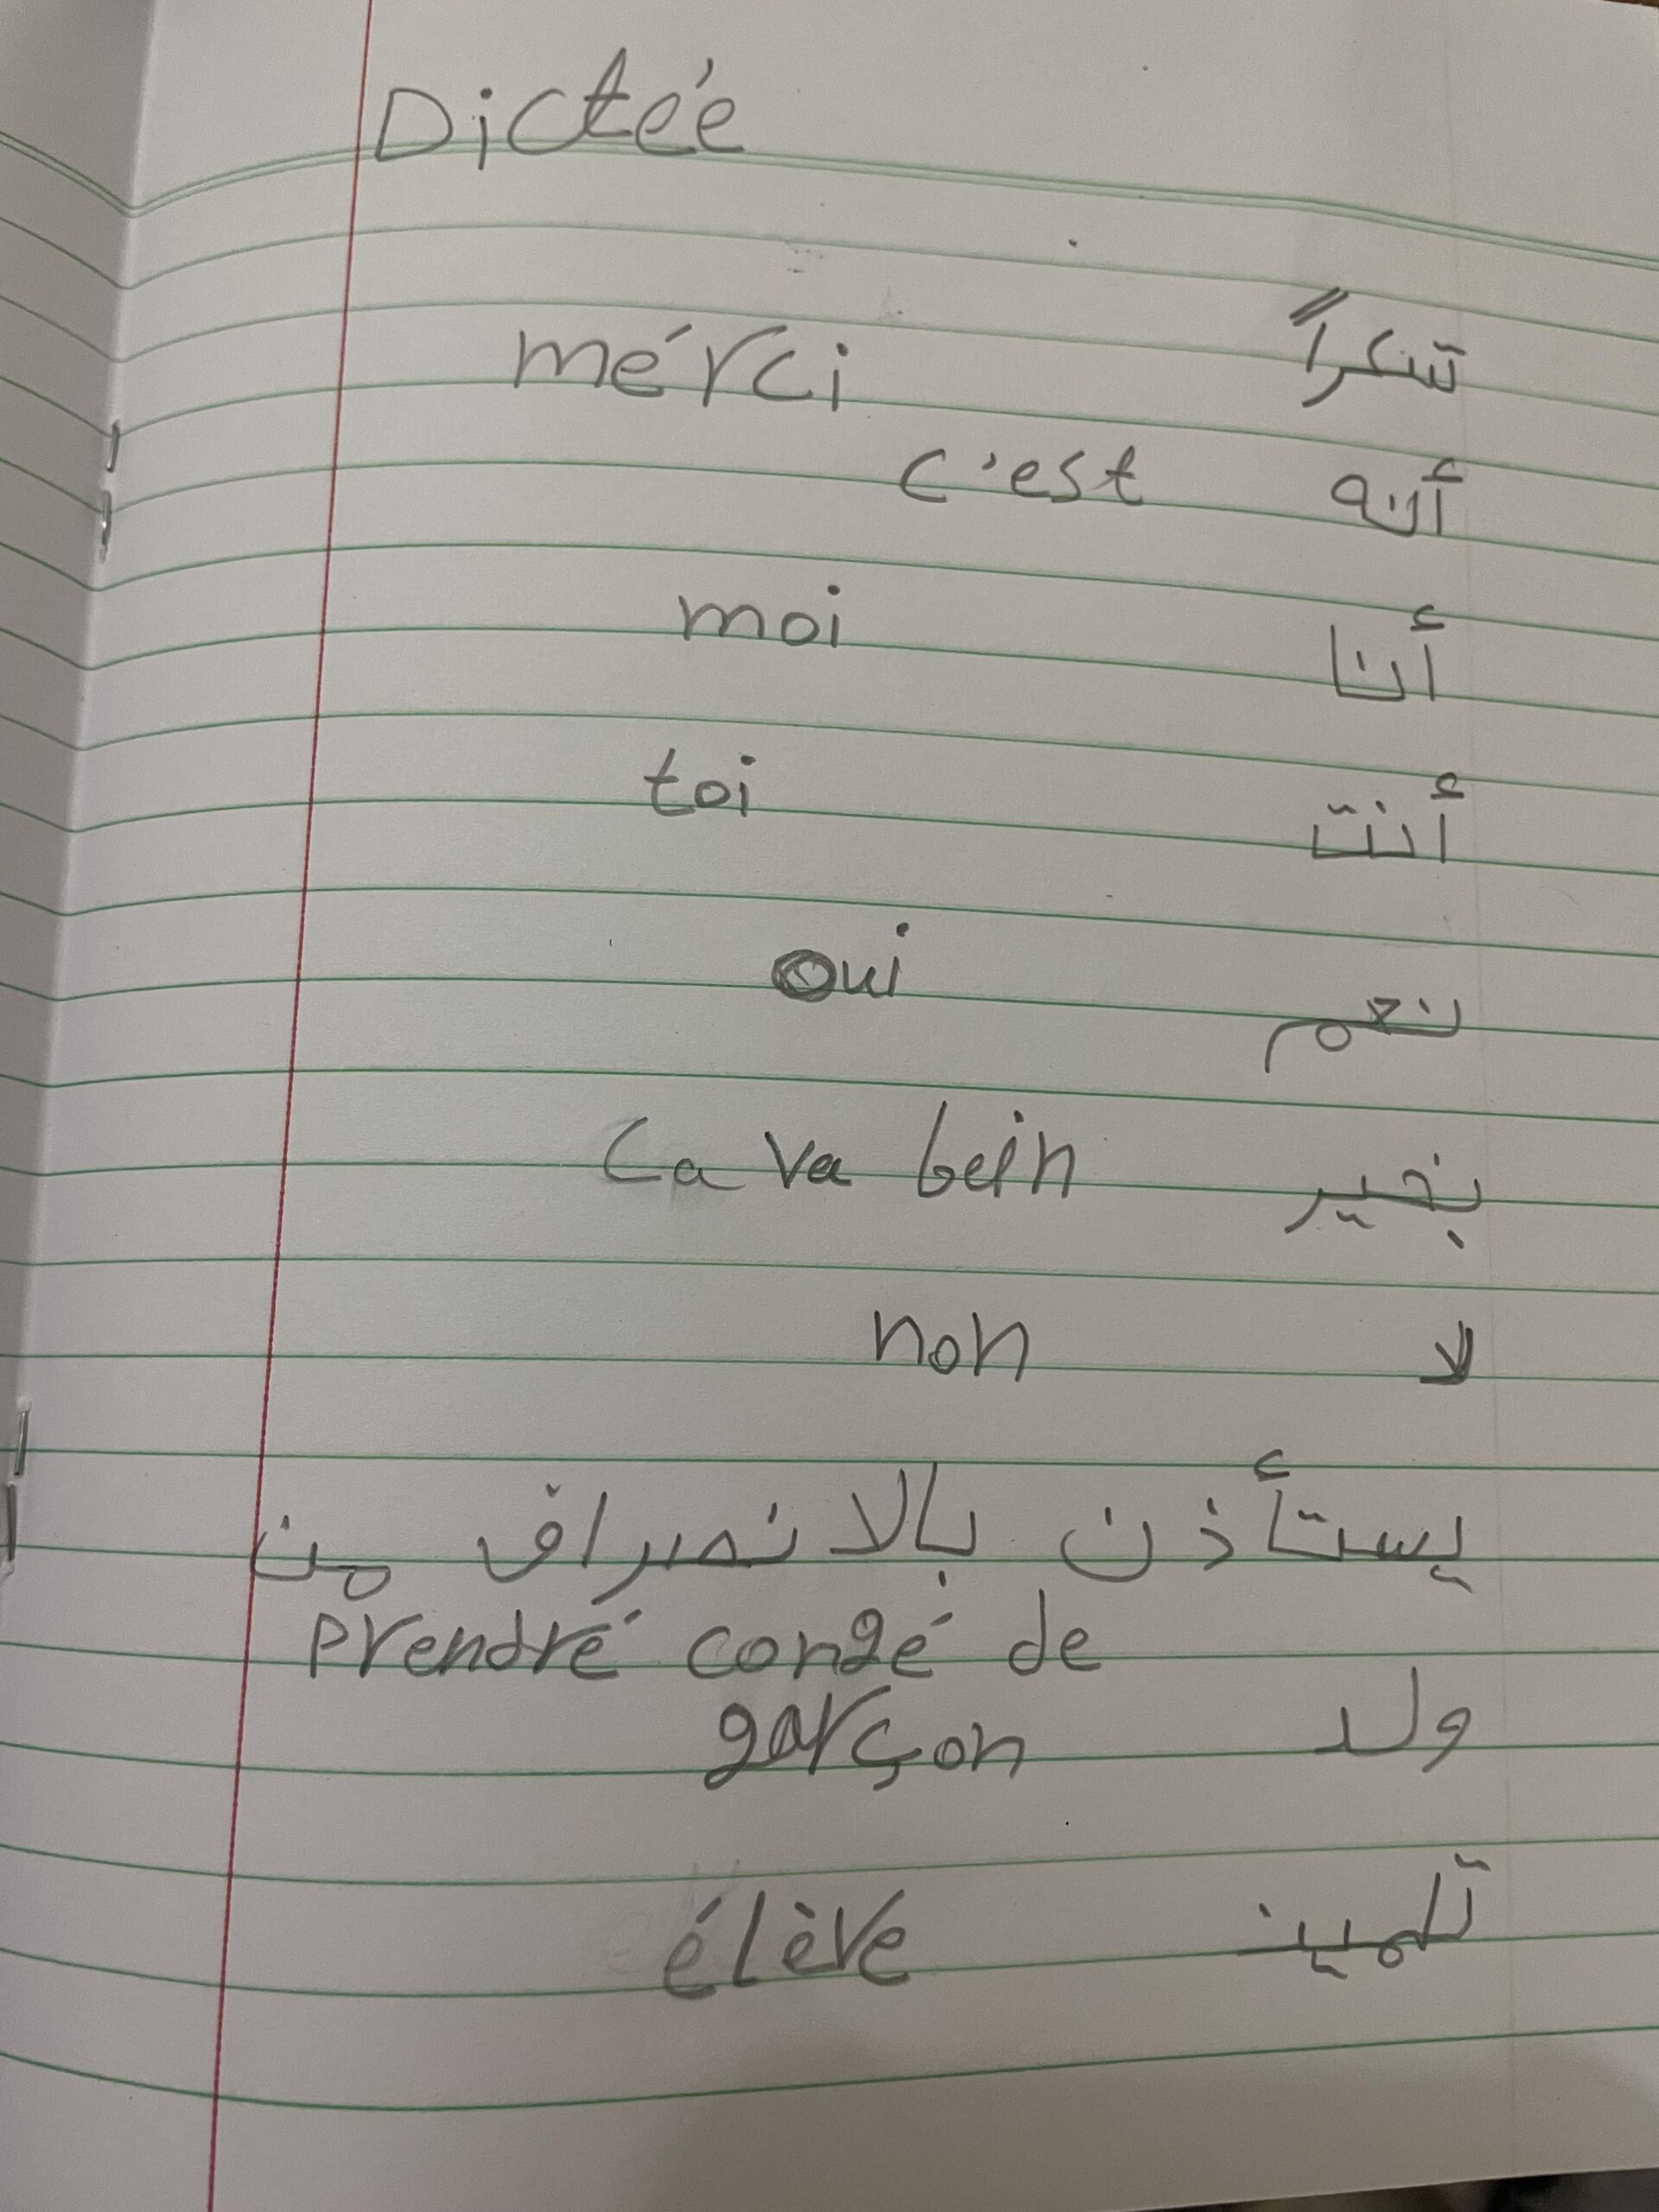 Dictée
mérci شكراً
c'est أنه
moi أنا
toi أنت
oui نعم
Ca va bein بخير
non لا
يستأذن بالانصراف من
prendré congé de
garçon ولد
élève تلميذ